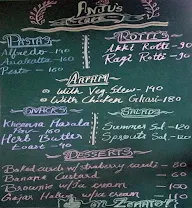 ANJU'S
PASTA'S
Alfredo - 140
Arrabatta - 140
Pesto - 160
ROTTI'S
Akki Rotti - 90
Ragi Rotti - 90
APPAM
With Veg. Stew - 140
With Chicken Ghassi - 180
SNACKS
Kheema Masala
Pav - 150
Herb Butter
Toast - 40
SALAD
Summer Sal - 120
Sprouts Sal - 120
DESSERTS
Baked curd w/ strawberry
Banana Custard - 60
Brownie w/ Ice cream - 100
Gajar Halwa w/ ice cream
on Zomato